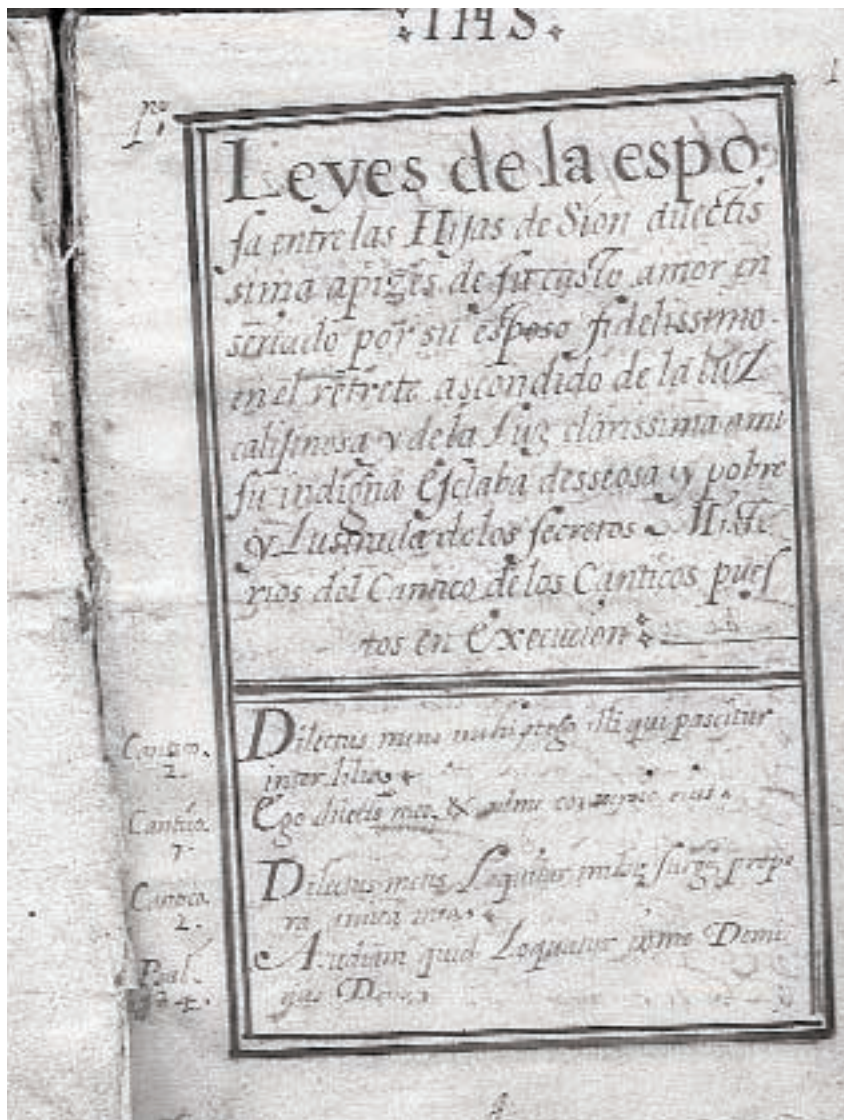 IHS
1
Pº.
Leyes de la espo
sa entre las Hijas de Sion dilectis
sima apizes de su casto amor en
señado por su esposo fidelissimo
en el retrete ascondido de la luz
caliginosa y de la Luz clarissima a mi
su indigna Esclaba desseosa y pobre
y de los secretos Miste
rios del Cantico de los Canticos pues
tos en Execucion
Dilectus meus mihi et ego illi qui pascitur
inter lilia
Cantica.
2.
Ego dilecto meo, & ad me eius
Cantica.
7.
Dilectus meus Loquitur mihi surge prope
ra amica mea
Cantica.
2.
Audiam quid Loquatur in me Domi
Deus
Psal.
84.